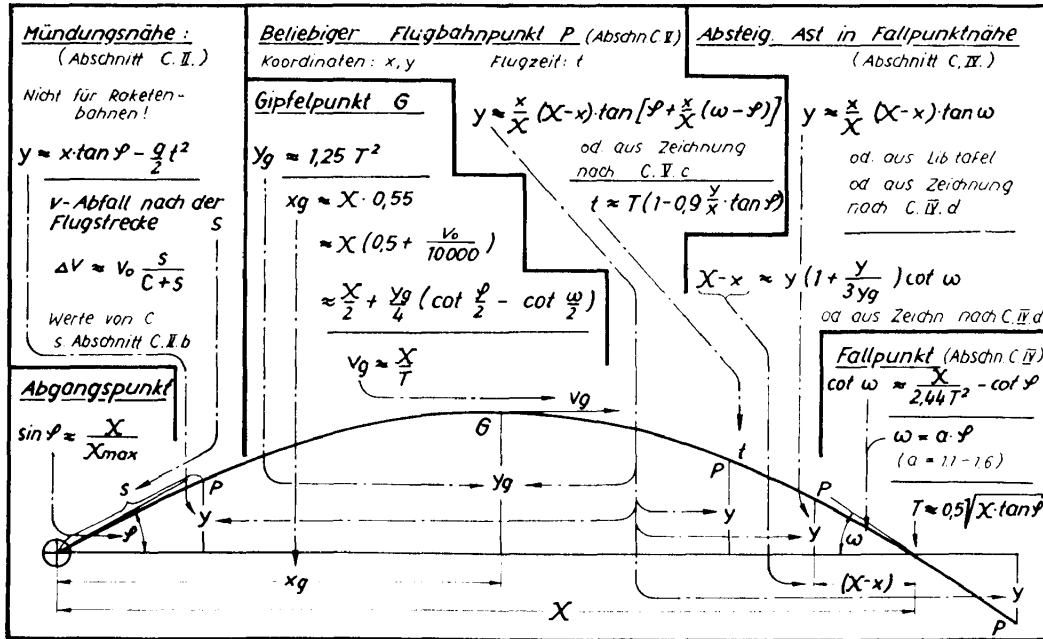 Mündungsnähe:
(Abschnitt C.II.)
Nicht für Raketen-
bahnen!
y ≈ x·tan φ − g/2 t²
v-Abfall nach der
Flugstrecke s
ΔV ≈ V₀ s/(C+s)
Werte von C
s. Abschnitt C.II.b
Abgangspunkt
sin φ ≈ X/Xmax
Beliebiger Flugbahnpunkt P (Abschn C.V)
Koordinaten: x, y Flugzeit: t
Gipfelpunkt G
yg ≈ 1,25 T²
xg ≈ X · 0,55
≈ X (0,5 + V₀/10000)
≈ X/2 + yg/4 (cot φ/2 − cot ω/2)
vg ≈ X/T
y ≈ x/X (X−x)·tan [φ + x/X (ω−φ)]
od. aus Zeichnung
nach C.V.c
t ≈ T (1−0,9 y/x · tan φ)
Absteig. Ast in Fallpunktnähe
(Abschnitt C.IV.)
y ≈ x/X (X−x)·tan ω
od. aus Libtafel
od. aus Zeichnung
nach C.IV.d
X−x ≈ y (1 + y/3yg) cot ω
od aus Zeichn nach C.IV.d
Fallpunkt (Abschn. C.IV)
cot ω ≈ X/2,44T² − cot φ
ω = a·φ
(a = 1.1 − 1.6)
T ≈ 0,5 √X·tan φ
vg
G
t
s
P
yg
P
P
y
y
y
φ
ω
xg
(X−x)
y
X
P